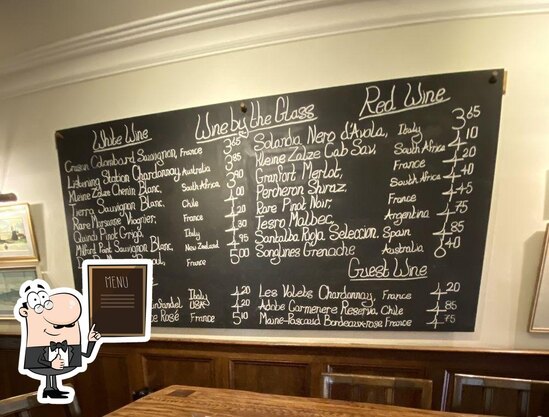 Wine by the Glass
White Wine
Colombard Sauvignon, France 3 65
Listening Station Chardonnay Australia 3 85
Kleine Zalze Chenin Blanc, South Africa 3 90
Tierra Sauvignon Blanc, Chile 4 00
Rare Marsanne Viognier, France 4 20
Quindi Pinot Grigi Italy 4 30
Sauvignon Blanc, New Zealand 4 95
France 5 00
Italy 4 20
USA 4 20
Rosé France 5 10
Red Wine
Solandia Nero d'Avola, Italy 3 65
Kleine Zalze Cab Sav, South Africa 4 10
Granfort Merlot, France 4 20
Percheron Shiraz, South Africa 4 40
Rare Pinot Noir, France 4 45
Tesro Malbec, Argentina 4 75
Santalba Rioja Seleccion, Spain 4 85
Songlines Grenache Australia 6 40
Guest Wine
Les Volets Chardonnay, France 4 20
Adobe Carmenere Reserva Chile 4 85
Bordeaux rose France 4 75
MENU